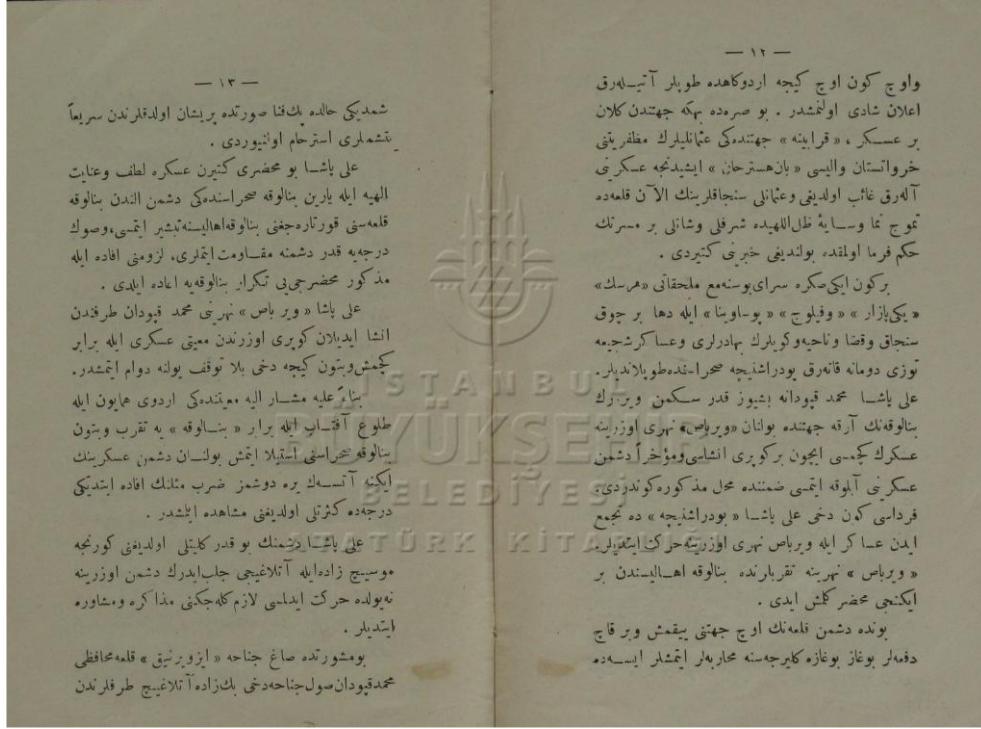 — ١٢ —
واوچ كون اوچ كيجه اردوكاهده طوپلر آتيـله‌رق
اعلان شادى اولنمشدر . بو صره‌ده بهكه جهتندن كلان
بر عسـكر ، « قرابينه » جهتنده‌كى عثمانليلرك مظفريتنى
خرواتستان واليسى « يان‌هسترحان » ايشيدنجه عسكرينى
آله‌رق غائب اولديغى وعثمانلى سنجاقلرينك الآن قلعه‌ده
تموج نما وسـايهٔ ظل‌اللهيده شرفلى وشانلى بر مسرتك
حكم فرما اولمقده بولنديغى خبرينى كتيردى .
بركون ايكى‌صكره سراى‌بوسنه‌مع ملحقاتى «هرسك»
« يكى‌بازار » « وفيلوج » « پو-اوينا » ايله دها بر چوق
سنجاق وقضا وناحيه‌وكويلرك بهادرلرى وعساكر‌شجيعه
توزى دومانه قاته‌رق پودراشنيچه صحراسـنده‌طوپلانديلر.
على پاشـا محمد قپودانه بشيوز قدر سـكمن ويره‌رك
بنالوقه‌نك آرقه جهتنده بولنان «ويرباص» نهرى اوزرينه
عسكرك كچمسى ايچون بركوپرى انشاسى‌ومؤخراً دشمن
عسكرينى آبلوقه ايتمسى ضمننده محل مذكوره‌كوندردى.
فرداسى كون دخى على پاشـا « بودراشنيچه » ده تجمع
ايدن عساكر ايله ويرباص نهرى اوزرينه‌حركت ايتديلر.
« ويرباص » نهرينه تقربلرنده بنالوقه اهـاليـسندن بر
ايكنجى محضر كلمش ايدى .
بونده دشمن قلعه‌نك اوچ جهتنى ييقمش وبر قاچ
دفعه‌لر بوغاز بوغازه كلير‌جه‌سنه محاربه‌لر ايتمشلر ايسـه‌ده
— ١٣ —
شمديكى حالده پك‌فنا صورتده پريشان اولدقلرندن سريعاً
يتشملرى استرحام اولنيوردى .
على پاشـا بو محضرى كتيرن عسكره لطف وعنايت
الهيه ايله يارين بنالوقه صحراسنده‌كى دشمن الندن بنالوقه
قلعه‌سنى قورتاره‌جغنى بنالوقه‌اهاليسنه‌تبشير ايتمسى،وصوك
درجه‌يه قدر دشمنه مقـاومت ايتملرى، لزومنى افاده ايله
مذكور محضرجى‌يى تكرار بنالوقه‌يه اعاده ايلدى .
على پاشا « ويرباص » نهرينى محمد قپودان طرفندن
انشا ايديلان كوپرى اوزرندن معيتى عسكرى ايله برابر
كچمش‌وبتون كيجه دخى بلا توقف يولنه دوام ايتمشدر.
بناءً عليه مشـار اليه معيتنده‌كى اردوى همايون ايله
طلوع آفتـاب ايله برابر « بنـالوقه » يه تقرب وبتون
بنالوقه صحراسنى استيلا ايتمش بولنـان دشمن عسكرينك
ايكنه آتسـه‌ك يره دوشمز ضرب مثلنك افاده ايتديكى
درجه‌ده كثرتلى اولديغنى مشاهده ايلمشدر .
على پاشـا دشمنك بو قدر كليتلى اولديغنى كورنجه
موسينيچ زاده‌ايله آتلاغيجى جلب‌ايده‌رك دشمن اوزرينه
نه‌يولده حركت ايدلمسى لازم‌كله‌جكنى مذاكره ومشاوره
ايتديلر .
بومشورتده صاغ جناحه « ايزويرنيق » قلعه‌محافظى
محمدقپودان‌صول‌جناحه‌دخى بك‌زاده آتلاغييج طرفلرندن